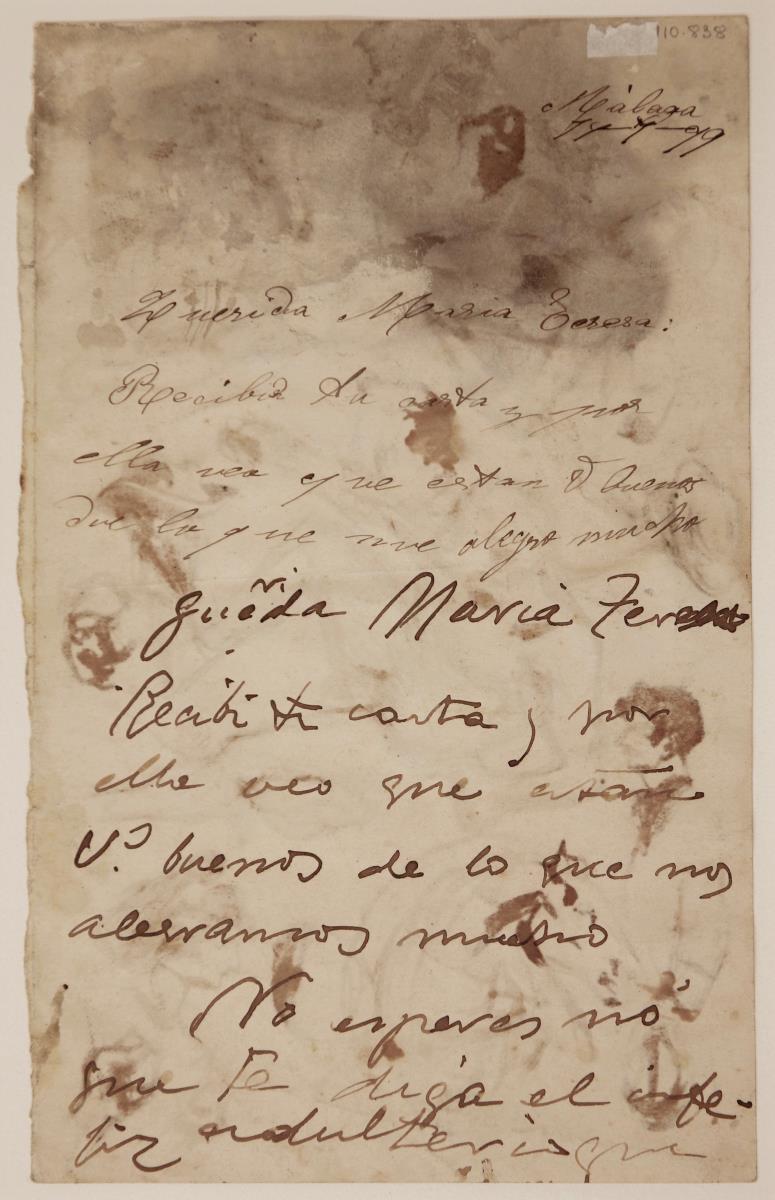 110.838
Málaga
99
Querida Maria Teresa:
Recibí tu carta y por
ella veo que estan V buenos
de lo que me alegro mucho
Querida Maria Teresa
Recibi tu carta y por
ella veo que están
V.s buenos de lo que nos
alegramos mucho
No esperes nó
que te diga el infe-
liz adulterio que